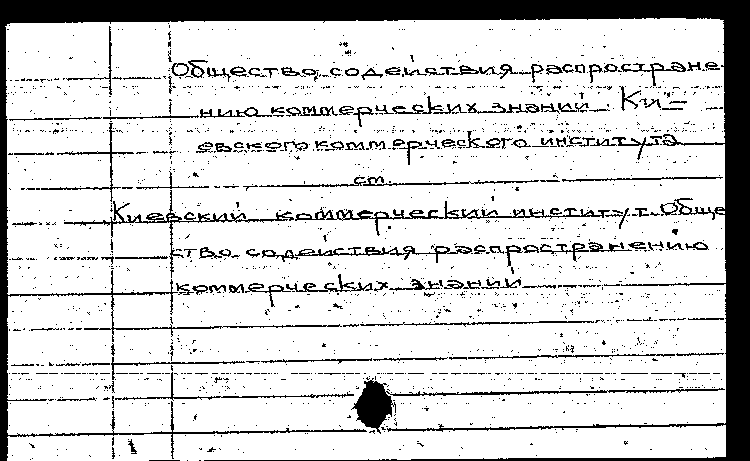 Общество содействия распростране-
нию коммерческих знаний. Ки=
евского коммерческого института
см.
Киевский коммерческий институт. Обще
ство содействия распространению
коммерческих знаний